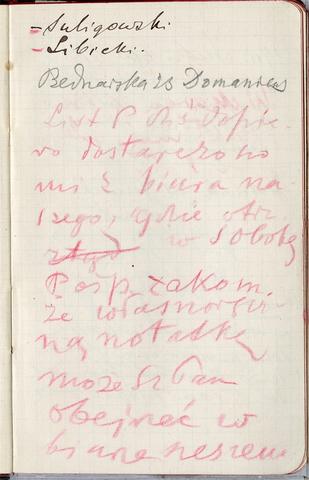 - Suligowski.
- Libicki.
Bednarska 23 Domaniews
List P. dopie-
ro dostarczono
mi z biura na-
szego, gdzie otrz.
w sobotę
Posp. zakom.
że własnoręcz-
ną notatkę
może Sz Pan
obejrzeć w
biurze naszem